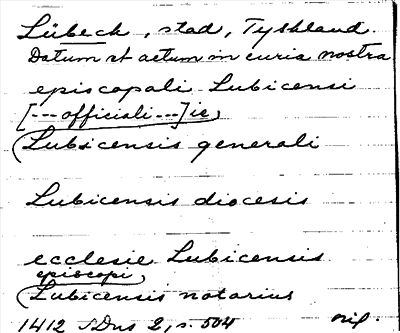 Lübeck, stad, Tyskland.
Datum et actum in curia nostra
episcopali Lubicensi
[---officiali---]ie,
(Lubicensis generali
Lubicensis diocesis
ecclesie Lubicensis
episcopi,
(Lubicensis notarius
1412 SDns 2, s. 504 orig.